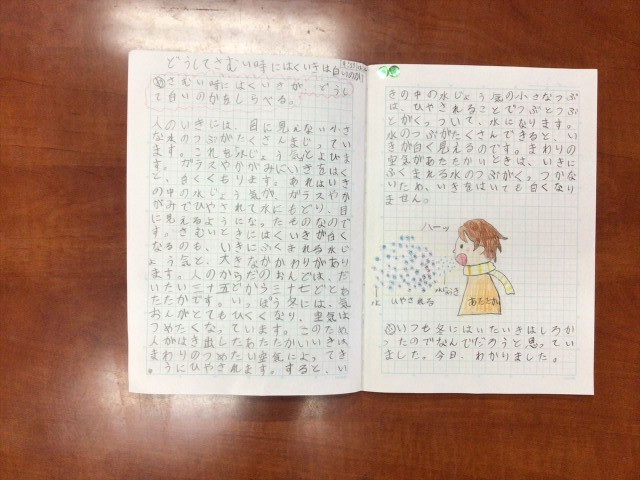 どうしてさむい時にはくいきは白いのか
さむい時にはくいきが、どうし
て白いのかをしらべる。
人のいきには、目に見えない小さ
な水のつぶがたくさんまじってい
ます。これを水じょう気とよびま
す。ガラスやかがみにいきをはく
と、白くくもります。あれはいき
の中の水じょう気が、ガラスやか
がみでひやされて水にもどり、目
に見えるようになったものなので
す。さむいときにはくいきが白く
なるのも、いきにふくまれる水じ
ょう気と、大きなかかわりがあり
ます。人のからだのおんどは、だ
いたい三十五どから三十七どとあ
たたかです。いっぽう冬には、気
おんがとてもひくくなり、空気は
つめたくなっています。このため
人がはき出したあたたかいいきは、
まわりのつめたい空気によってき
ゅうにひやされます。すると、い
きの中の水じょう気の小さなつぶ
は、ひやされることでつぶとつぶ
とがくっついて、水になります。
水のつぶがたくさんできると、い
きが白く見えるのです。まわりの
空気があたたかいときは、いきに
ふくまれる水のつぶがくっつかな
いため、いきをはいても白くなり
ません。
ハーッ
水じょうき
水
ひやされる
あたたかい
いつも冬にはいたいきはしろか
ったのでなんでだろうと思ってい
ました。今日、わかりました。